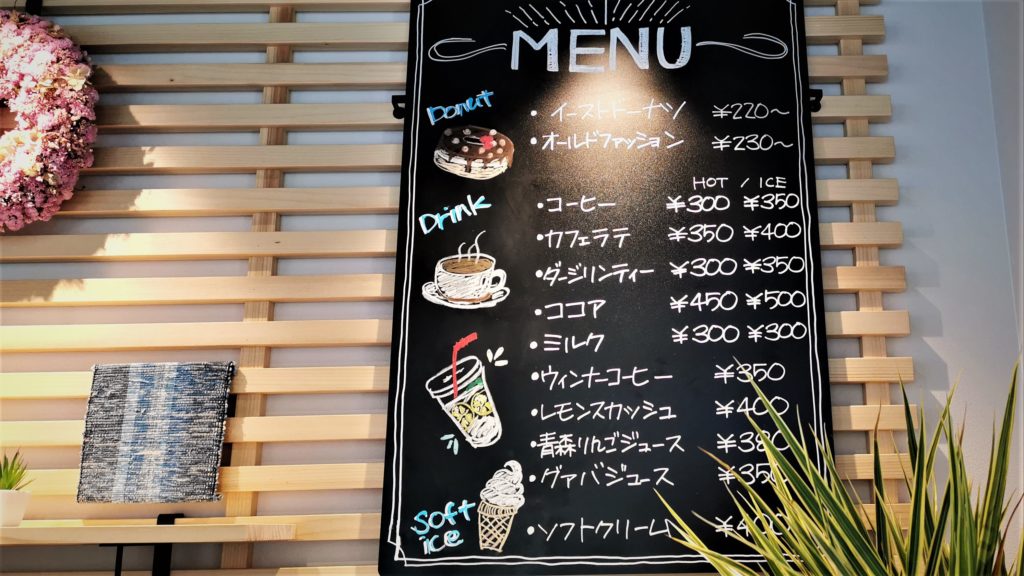 MENU
Donut
・イーストドーナツ ¥220〜
・オールドファッション ¥230〜
HOT / ICE
Drink
・コーヒー ¥300 ¥350
・カフェラテ ¥350 ¥400
・ダージリンティー ¥300 ¥350
・ココア ¥450 ¥500
・ミルク ¥300 ¥300
・ウィンナーコーヒー ¥350
・レモンスカッシュ ¥400
・青森りんごジュース ¥380
・グァバジュース ¥350
Soft ice
・ソフトクリーム ¥400